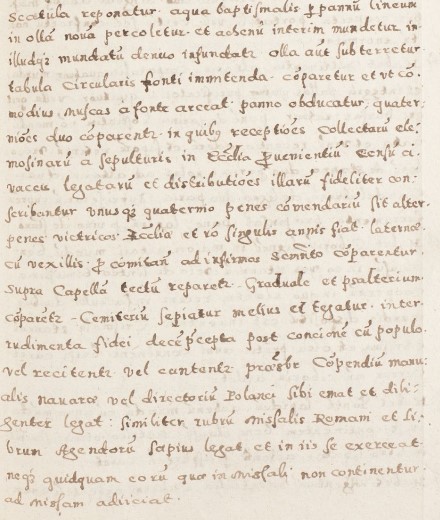 Scatula reponatur. aqua baptismalis ꝑ pannũ lineum
in ollã nouã percoletur. et ahenũ interim mundetur in
illudqȝ mundatũ denuo infundatr olla aũt subterretur.
tabula Circularis fonti immittenda. cõparetur et vt cõ⸗
modius muscas a fonte arceat. panno obducatur. quater⸗
niões duo cõparentr. in quibȝ receptiões Collectarũ ele⸗
mosinarũ à sepulturis in Ecc̃lia ꝓuenientiũ Censũ
legatarũ et distributiões illarũ fideliter con⸗
scribantur vnus qȝ quaternio penes cõmendariũ sit alter.
penes victricos Ecc̃lia et rõ singulis annis fiat. laternæ.
cũ vexillis. ꝓ comitañ ad infirmos cõparentur.
supra Capellã tectũ reparetr. Graduale et psalterium.
cõparetr – Cemiteriũ sepiatur melius et tegatur. inter.
rudimenta fidei decẽ p̃cepta post concionẽ cũ populo.
vel recitentr. vel cantentr. præsbr Cõpendiũ manu⸗
alis nauaræ vel directoriũ Polanci sibi emat et dili⸗
genter legat: similiter rubrũ Missalis Romani et li⸗
brum Agendorũ sæpius legat, et in iis se exerceat.
neqȝ quidquam eorũ quæ in Missali non continentur.
ad Missam adiiciat.